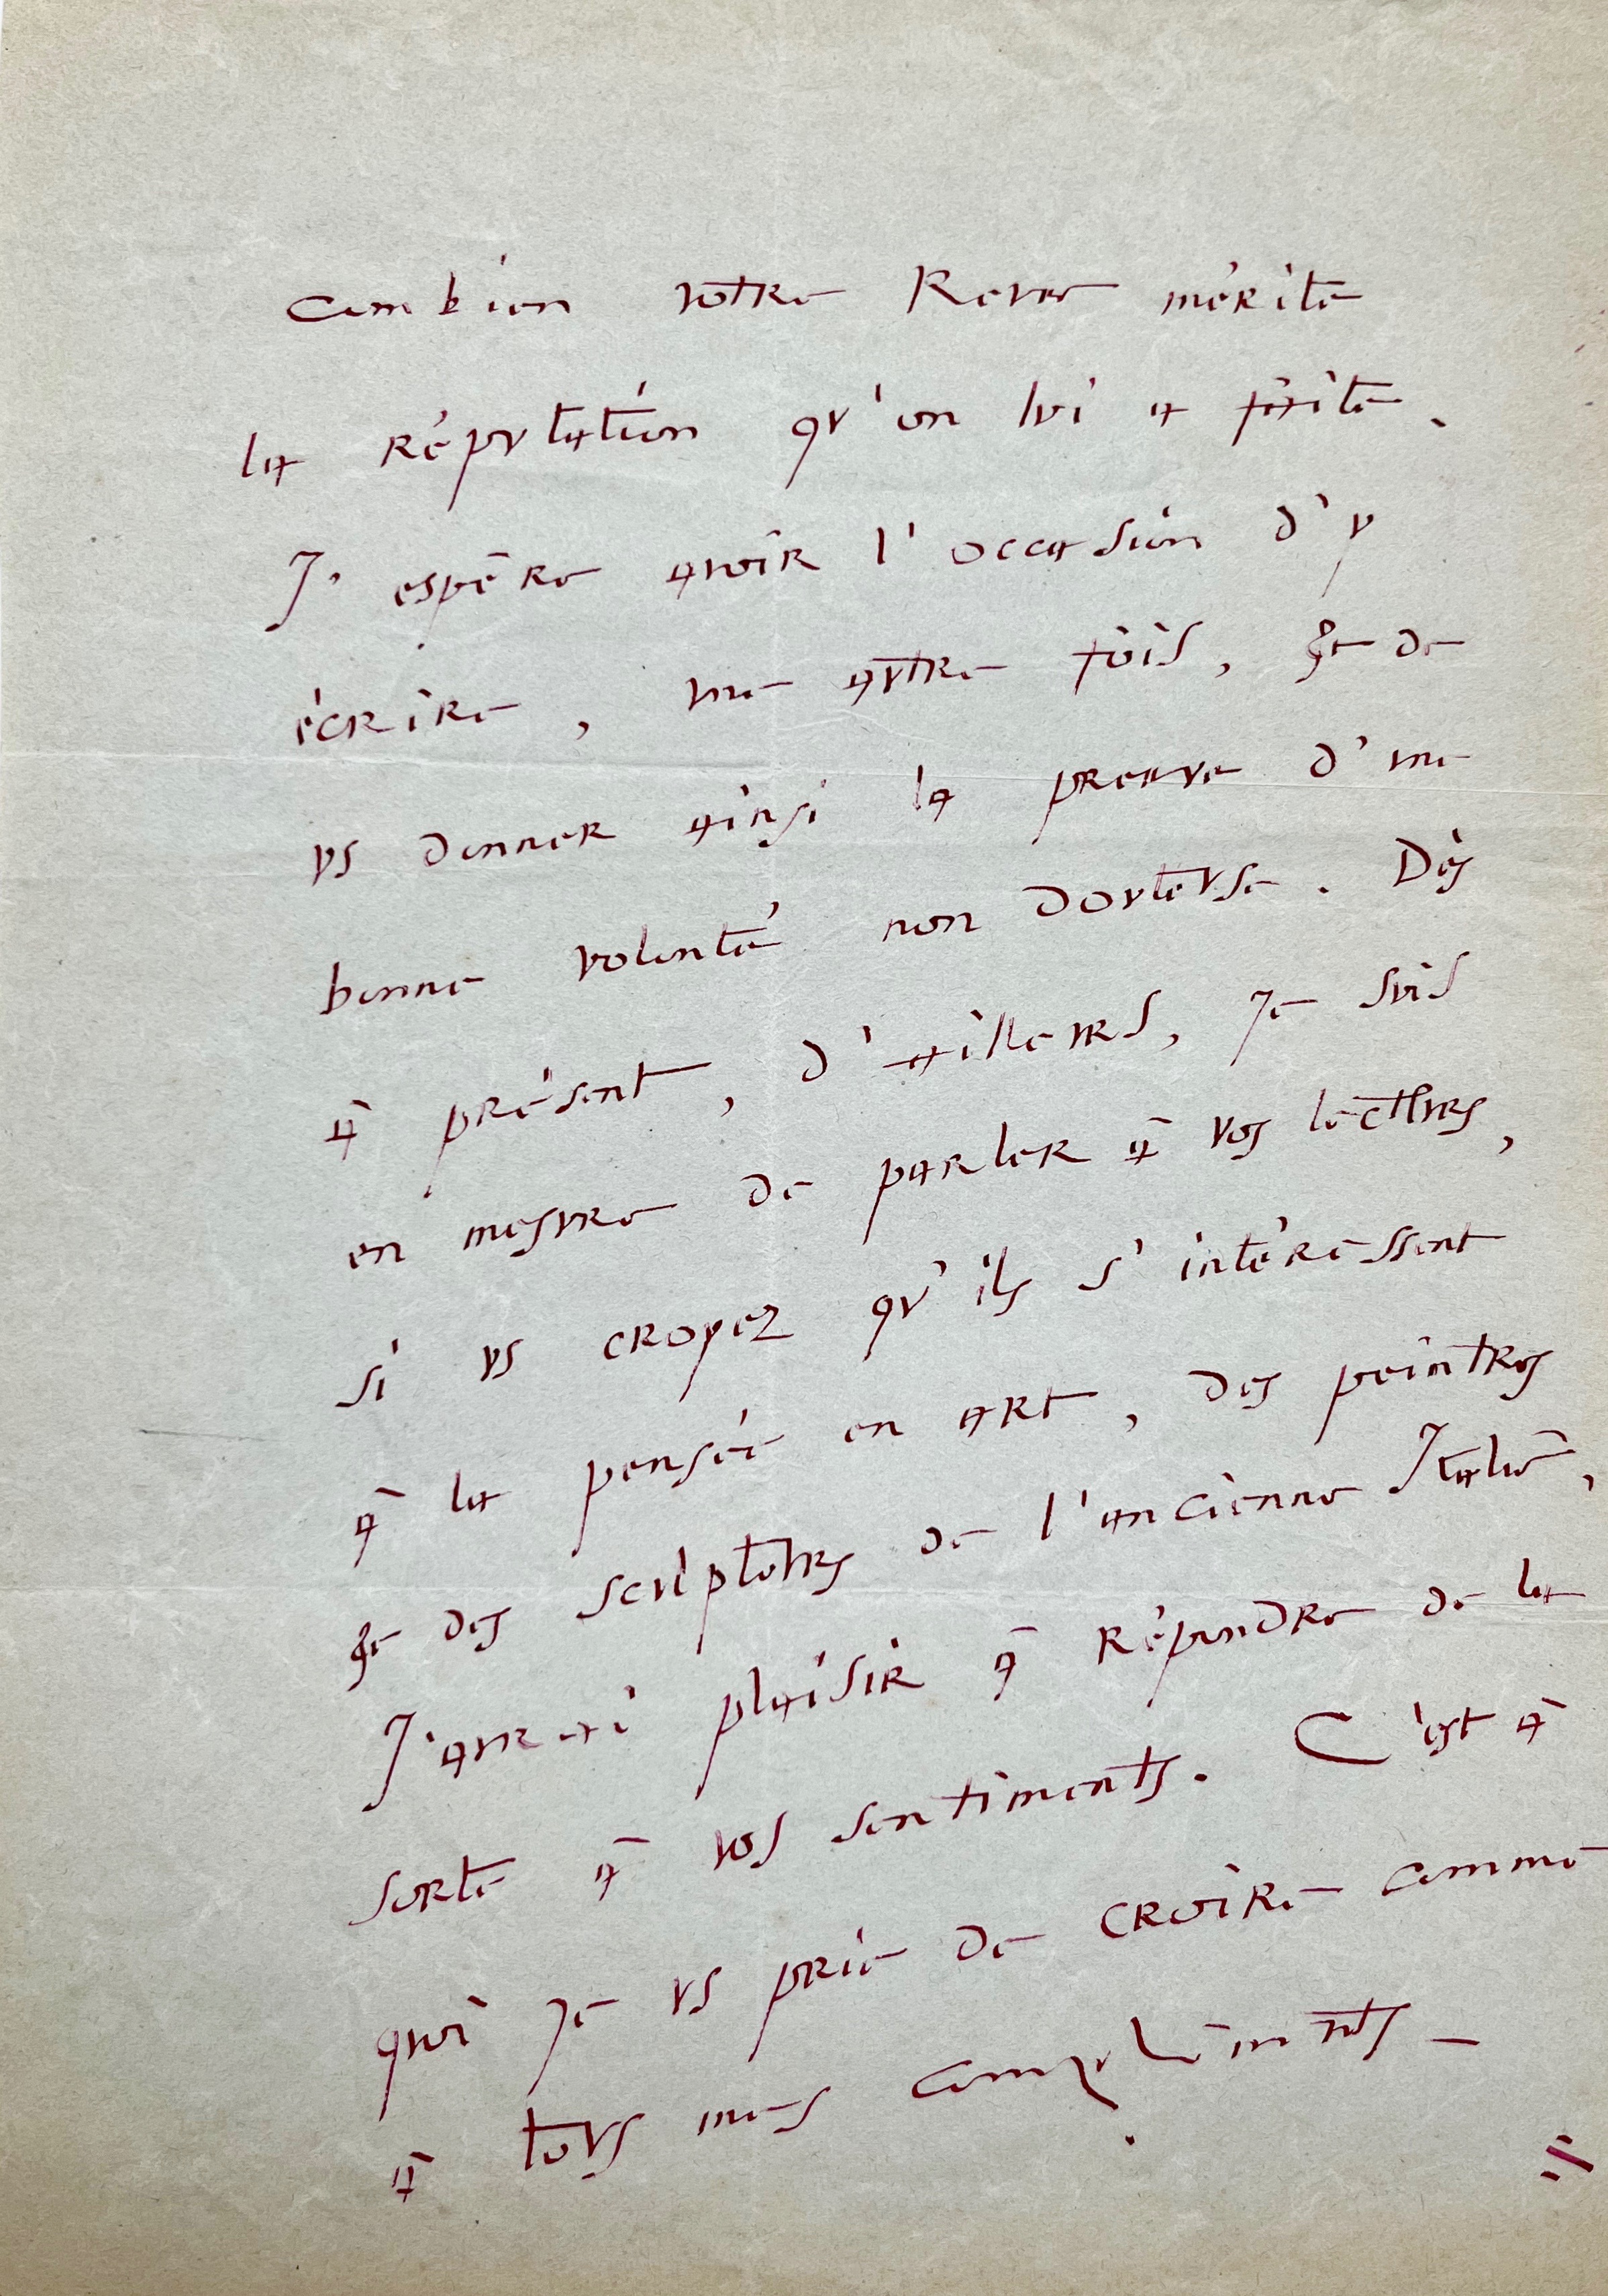 combien votre Revue mérite
la réputation qu'on lui a faite.
J'espère avoir l'occasion d'y
écrire, une autre fois, & de
vs donner ainsi la preuve d'une
bonne volonté non douteuse. Dès
à présent, d'ailleurs, je suis
en mesure de parler à vos lecteurs,
si vs croyez qu'ils s'intéressent
à la pensée en art, des peintres
& des sculpteurs de l'ancienne Italie,
J'aurai plaisir à répondre de la
sorte à vos sentiments. C'est à
quoi je vs prie de croire comme
à tous mes compliments –